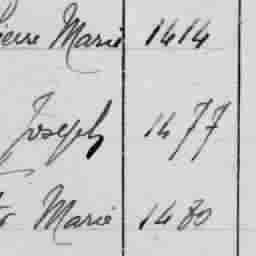 Pierre Marie 1414
Joseph 1477
Marie 1480